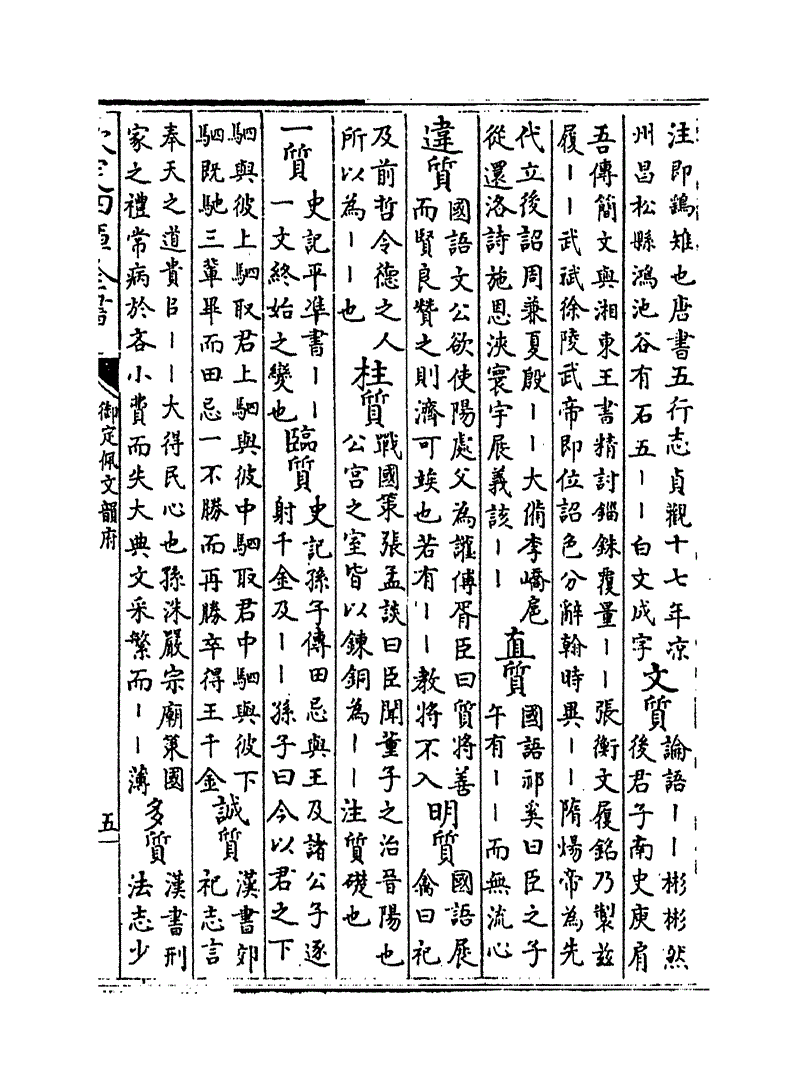 注即鵠雉也唐書五行志貞觀十七年凉
州昌松縣鴻池谷有石五丨丨白文成字
文質
論語丨丨彬彬然
後君子南史庾肩
吾傳簡文與湘東王書精討錙銖覆量丨丨張衡文履銘乃製兹
履丨丨武斌徐陵武帝即位詔色分辭翰時異丨丨隋煬帝為先
代立後詔周兼夏殷丨丨大備李嶠扈
從還洛詩施恩浹寰宇展義該丨丨
直質
國語祁奚曰臣之子
午有丨丨而無流心
違質
國語文公欲使陽處父為讙傅胥臣曰質將善
而賢良贊之則濟可竢也若有丨丨教將不入
明質
國語展
禽曰祀
及前哲令德之人
所以為丨丨也
柱質
戰國策張孟談曰臣聞董子之治晉陽也
公宮之室皆以鍊銅為丨丨注質礎也
一質
史記平準書丨丨
一文終始之變也
臨質
史記孫子傳田忌與王及諸公子逐
射千金及丨丨孫子曰今以君之下
駟與彼上駟取君上駟與彼中駟取君中駟與彼下
駟既馳三輩畢而田忌一不勝而再勝卒得王千金
誠質
漢書郊
祀志言
奉天之道貴㠯丨丨大得民心也孫洙嚴宗廟策國
家之禮常病於吝小費而失大典文采繁而丨丨薄
多質
漢書刑
法志少
欽定四庫全書
御定佩文韻府
五